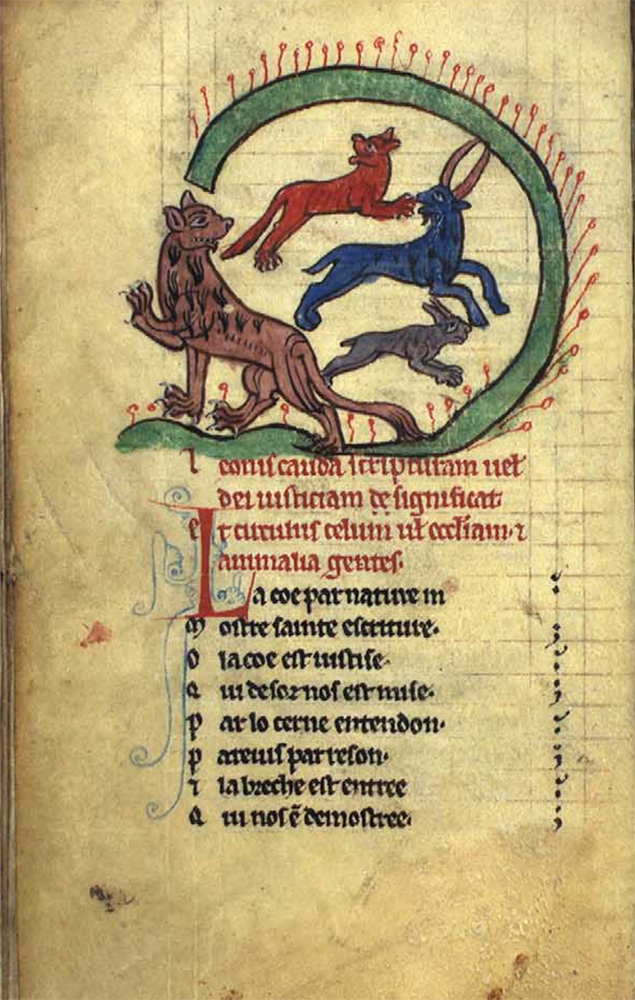 Leonis cauda scripturam uel
dei iusticiam designificat
et circulus celum ul̄ eccl̄iam ⁊
animalia gentes.
La coe par nature m
Mostre sainte escriture.
O la coe est iustise.
Qui desor nos est mise.
Par lo cerne entendon.
Pareuis par reson.
⁊ la breche est entree
Qui nos ē demostree.